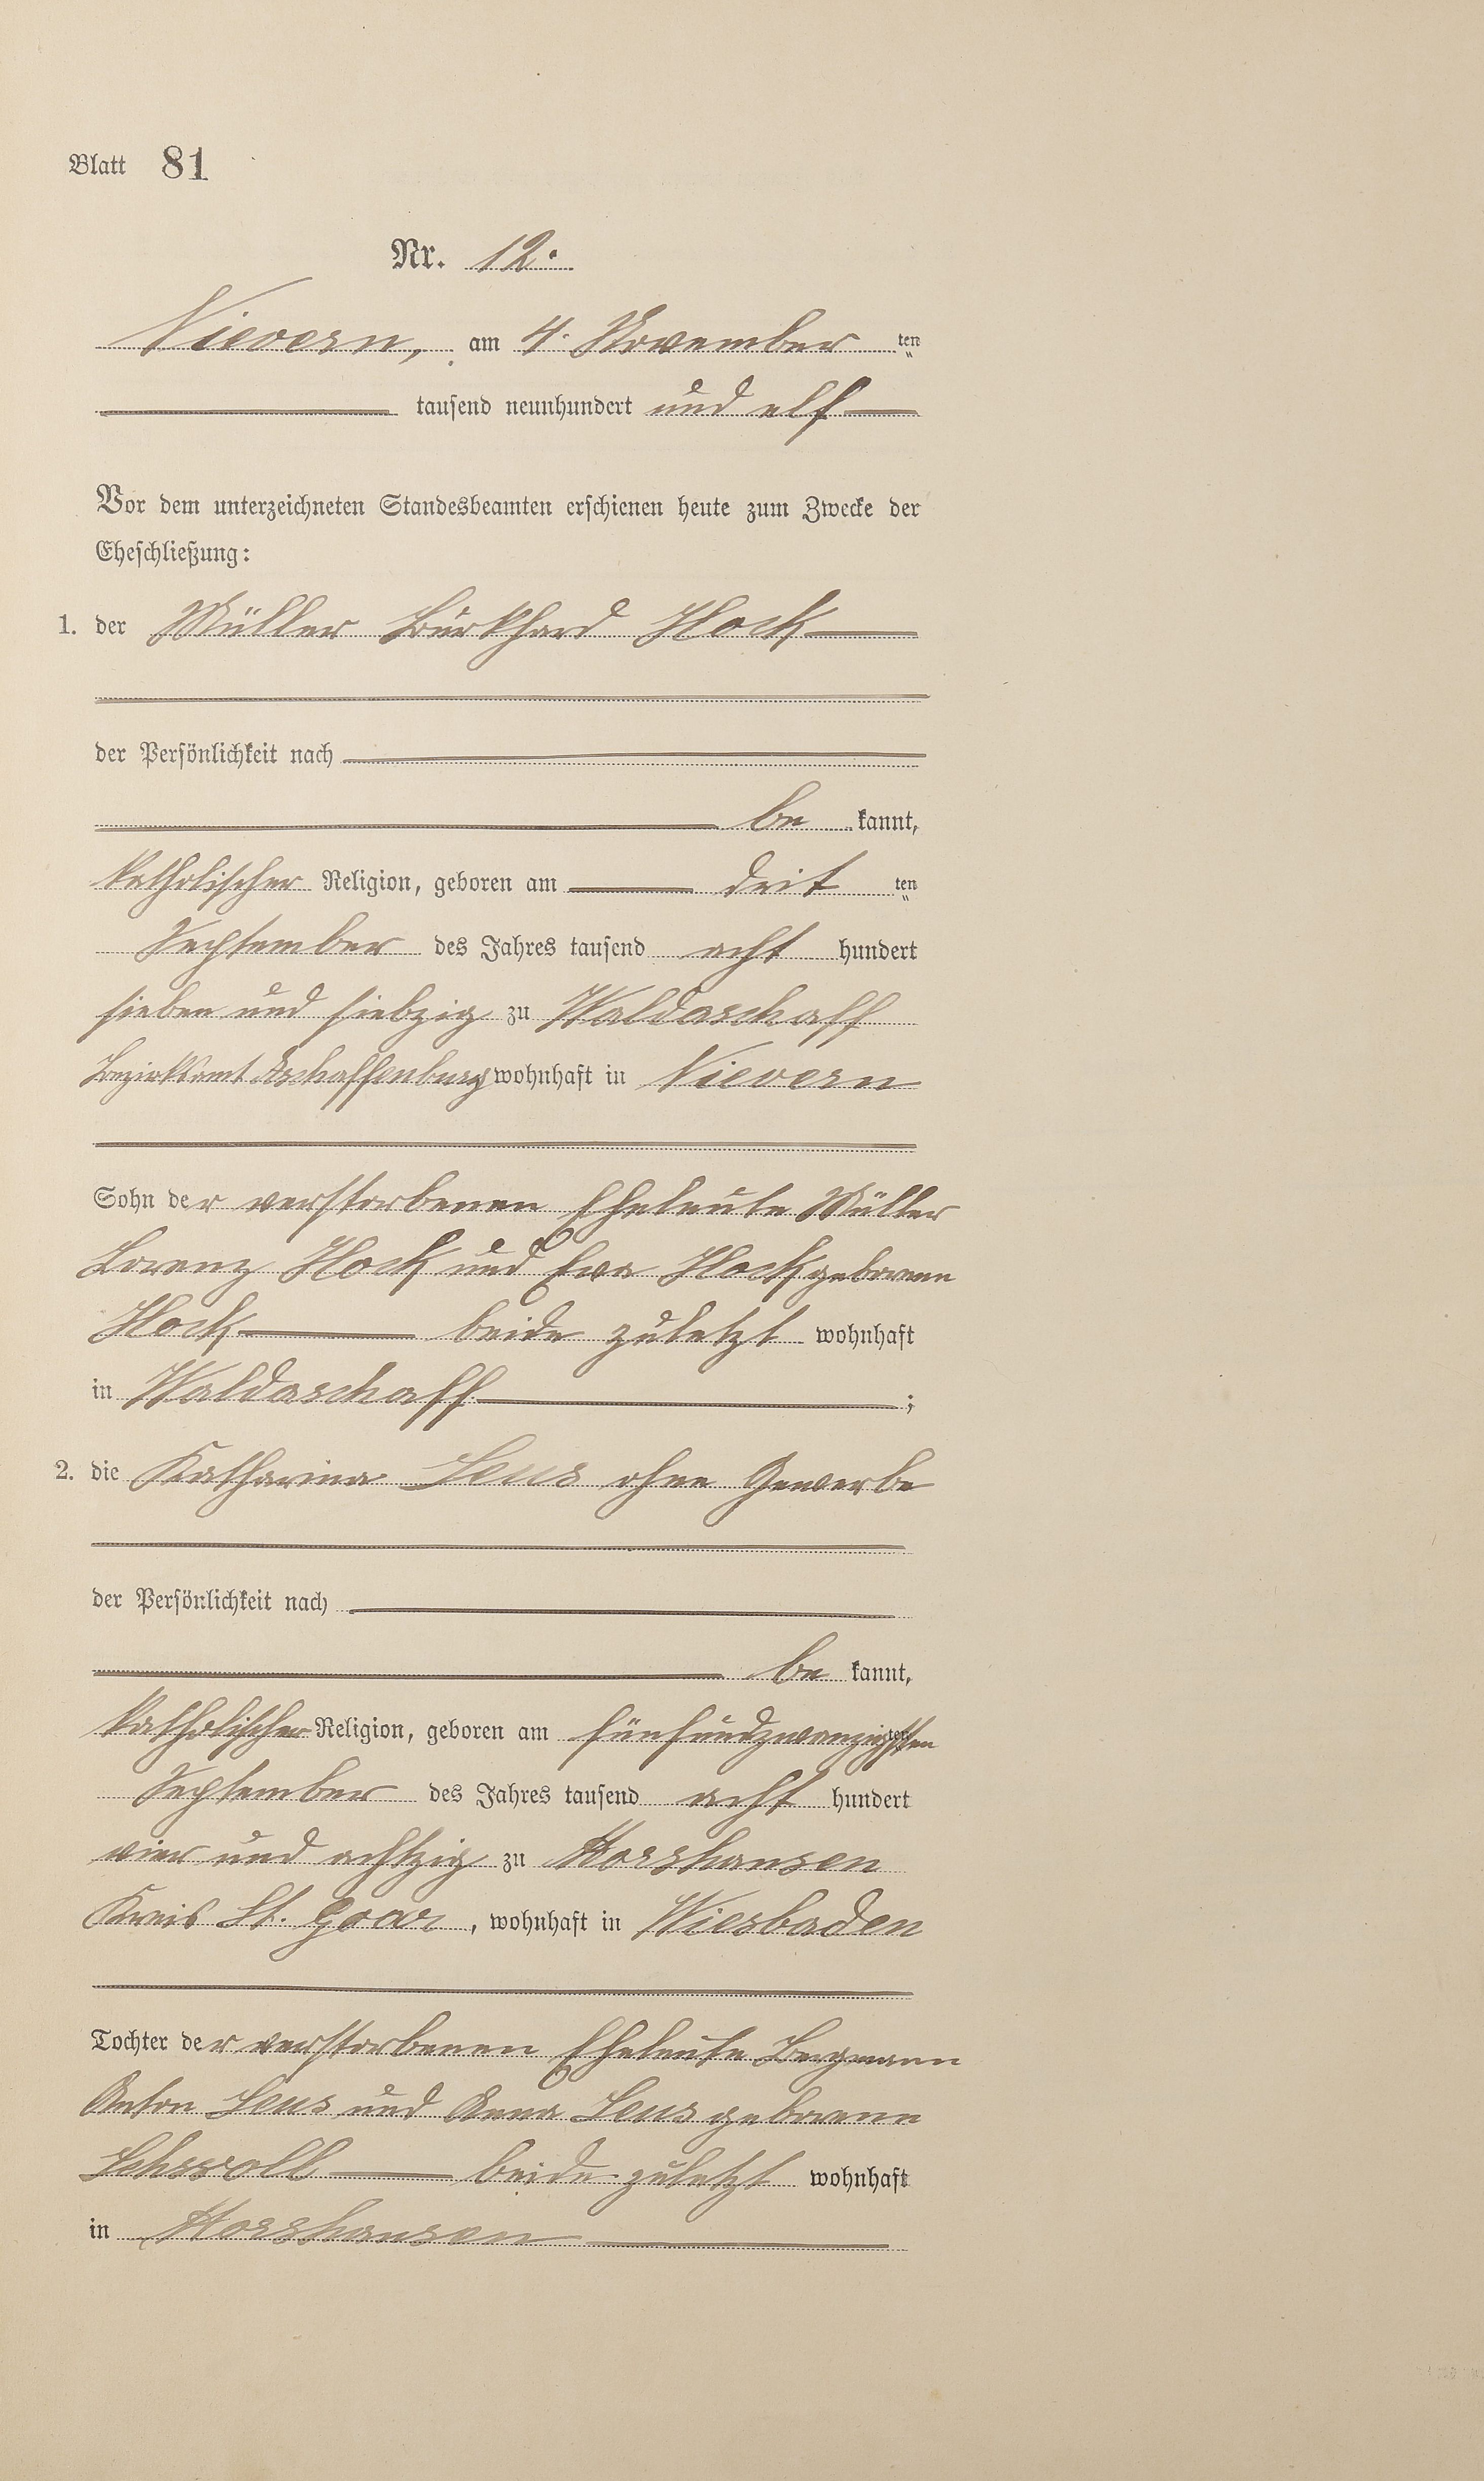 Blatt 81
Nr. 12.
Nievern, am 4. November ten
tausend neunhundert und elf
Vor dem unterzeichneten Standesbeamten erschienen heute zum Zwecke der
Eheschließung:
1. der Müller Burkhard Hock
der Persönlichkeit nach
be kannt,
katholischer Religion, geboren am drit ten
September des Jahres tausend acht hundert
sieben und siebzig zu Waldaschaff
Bezirksamt Aschaffenburg wohnhaft in Nievern
Sohn der verstorbenen Eheleute Müller
Lorenz Hock und Eva Hock geborene
Hock beide zuletzt wohnhaft
in Waldaschaff ;
2. die Katharina Leus ohne Gewerbe
der Persönlichkeit nach
be kannt,
katholischer Religion, geboren am fünfundzwanzigsten ten
September des Jahres tausend acht hundert
vier und achtzig zu Norshausen
Kreis St. Goar, wohnhaft in Wiesbaden
Tochter der verstorbenen Eheleute Bergmann
Anton Leus und Anna Leus geborene
beide zuletzt wohnhaft
in Norshausen